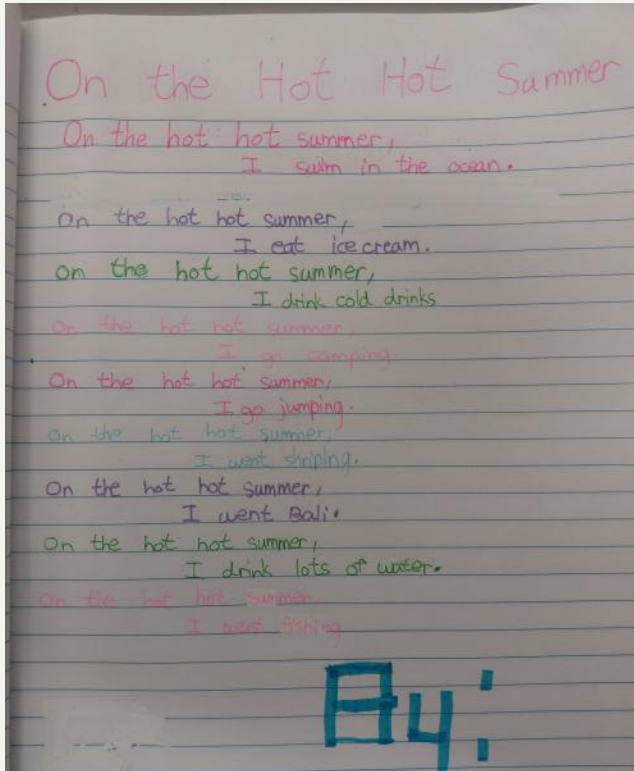 On the Hot Hot Summer
On the hot hot summer,
I swim in the ocean.
On the hot hot summer,
I eat ice cream.
On the hot hot summer,
I drink cold drinks
On the hot hot summer,
I go camping.
On the hot hot summer,
I go jumping.
On the hot hot summer,
I went shriping.
On the hot hot summer,
I went Bali.
On the hot hot summer,
I drink lots of water.
On the hot hot summer
I went fishing
By: